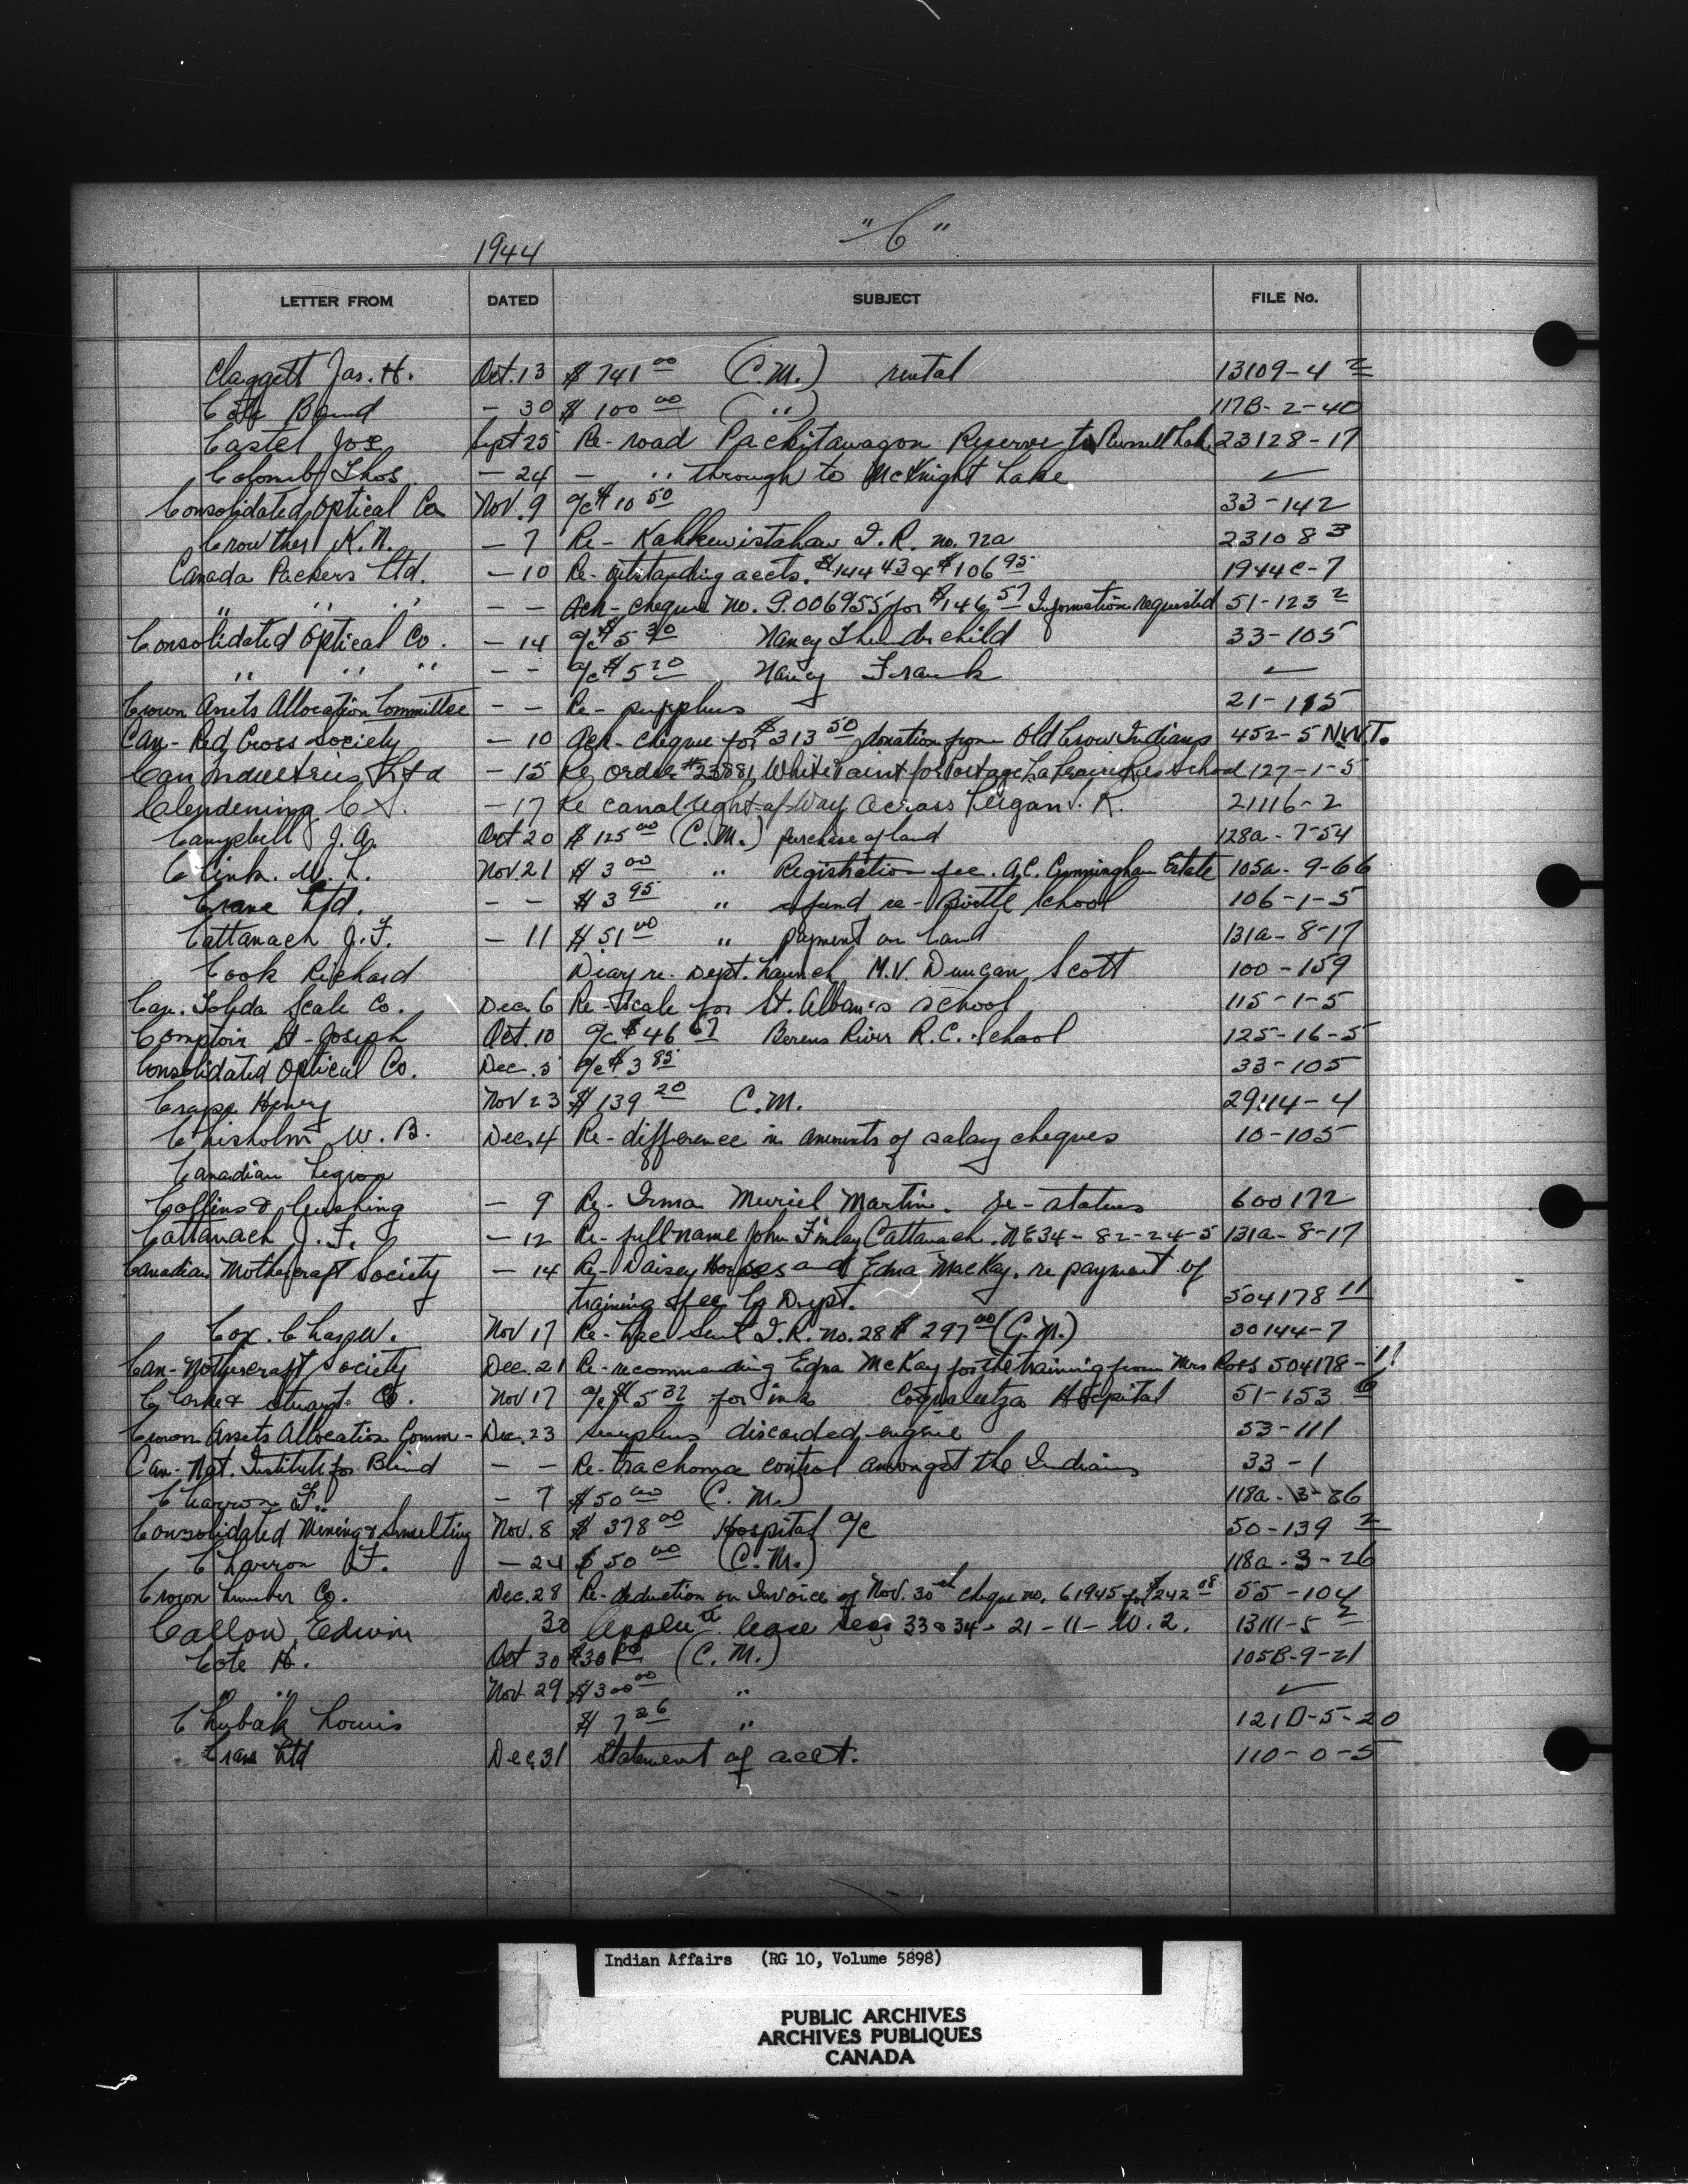 1944 "C"
LETTER FROM DATED SUBJECT FILE No.
Claggett Jas. H. Oct. 13 $ 741 00 (C.M.) rental 13109-4 2
Cote Band - 30 $ 100 00 ( " ) 117B-2-40
Castel Joe Sept 25 Re- road Pachitawagon Reserve to Russell Lake 23128-17
Colomb Thos. - 24 - " through to McKnight Lake ✓
Consolidated Optical Co Nov. 9 a/c $ 10 50 33-142
Crowther K.N. - 7 Re- Kahkewistahaw I.R. no. 72a 23108 3
Canada Packers Ltd. - 10 Re- outstanding accts. $144 43 & $106 95 1944c-7
" " " - - Ack- cheque No. P.006955 for $146 57 Information requested 51-123 2
Consolidated Optical Co. - 14 a/c $ 5 30 Nancy Thunderchild 33-105
" " " - - a/c $ 5 20 Nancy Frank ✓
Crown Assets Allocation Committee - - Re- surplus 21-115
Can- Red Cross Society - 10 Ack- cheque for $313 50 donation from Old Crow Indians 452-5 N.W.T.
Can Industries Ltd - 15 Re order #23881 White Paint for Portage La Prairie Res School 127-1-5
Clendening C - 17 Re canal right-of-Way across Peigan I. R. 21116-2
Campbell J.A. Oct 20 $ 125 00 (C.M.) purchase of land 128a-7-54
Clink. W. L. Nov. 21 $ 3 00 " Registration fee. A.C. Cunningham Estate 105a-9-66
Crane Ltd. - - $ 3 95 " refund re- Birtle School 106-1-5
Cattanach J.F. - 11 $ 51 00 " payment on land 131a-8-17
Cook Richard Diary re. Dept. Launch M.V. Duncan Scott 100-159
Can. Toledo Scale Co. Dec. 6 Re- Scale for St. Alban's School 115-1-5
Comptoir St-Joseph Oct. 10 a/c $ 46 67 Berens River R.C. School 125-16-5
Consolidated Optical Co. Dec. 5 a/c $ 3 85 33-105
Crapp Henry Nov 23 $ 139 20 C.M. 29114-4
Chisholm W. B. Dec. 4 Re- difference in amounts of salary cheques 10-105
Canadian Legion
Collins & Cushing - 9 Re- Irma Muriel Martin. re- status 600172
Cattanach J.F. - 12 Re- full name John Finlay Cattanach. NE34-82-24-5 131a-8-17
Canadian Mothercraft Society - 14 Re- Daisey and Edna MacKay. re payment of
training fee by Dept. 504178 11
Cox. Chas. W. Nov 17 Re- Lac Seul I.R. No. 28 $ 297 00 (C.M.) 30144-7
Can- Mothercraft Society Dec. 21 Re- recommending Edna McKay for the training from Mrs Ross 504178-11
Clarke & Stuart Co. Nov 17 a/c $ 5 32 for ink Coqualeetza Hospital 51-153 6
Crown Assets Allocation Comm- Dec. 23 surplus discarded engine 53-111
Can- Nat. Institute for Blind - - Re- trachoma control amongst the Indians 33-1
Charron F. - 7 $ 50 00 (C. M.) 118a-3-26
Consolidated Mining & Smelting Nov. 8 $ 378 00 Hospital a/c 50-139 2
Charron F. - 24 $ 50 00 (C.M.) 118a-3-26
Crown Lumber Co. Dec. 28 Re- deduction on Invoice of Nov. 30th cheque no. 61945 for $242 08 55-104
Callow, Edwin 30 Applct. lease secs 33 & 34-21-11-W.2. 13111-5 2
Cote H. Oct 30 $30 00 (C.M.) 105B-9-21
" " Nov 29 $300 00 " ✓
Chubak Louis $ 7 26 " 121D-5-20
Crane Ltd Dec. 31 Statement of acct. 110-0-5
Indian Affairs (RG 10, Volume 5898)
PUBLIC ARCHIVES
ARCHIVES PUBLIQUES
CANADA